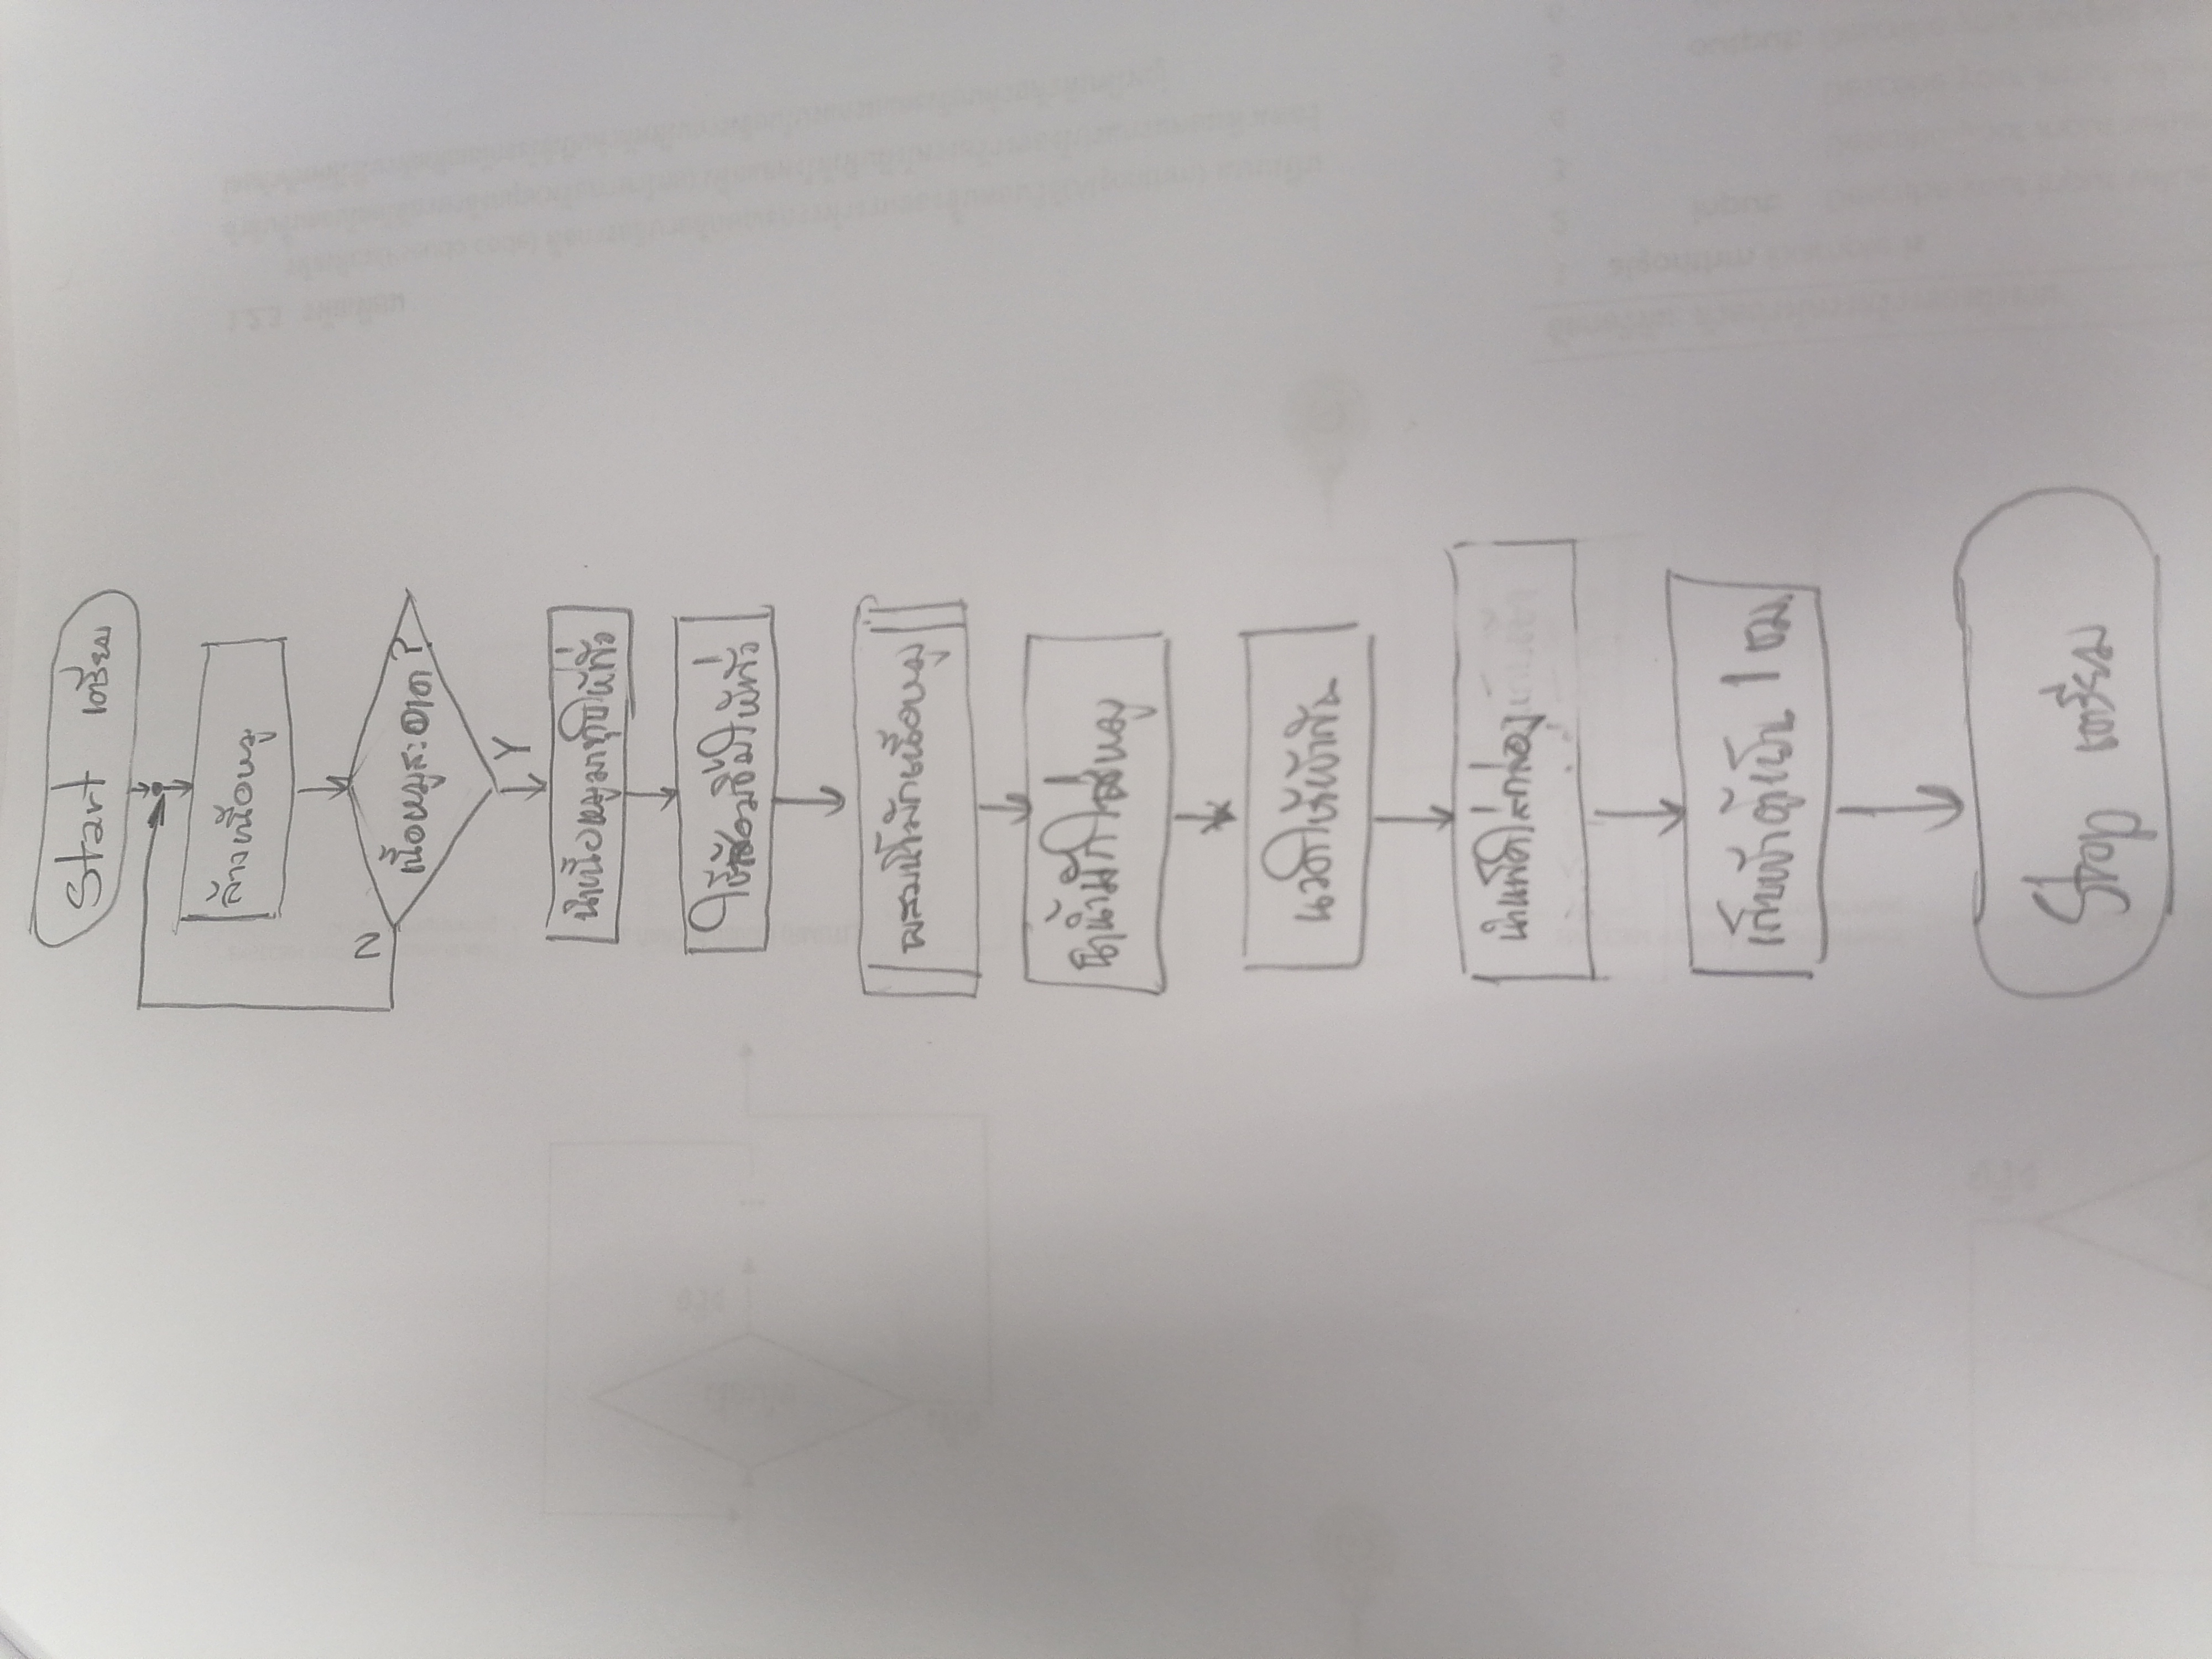 Start เตรียม
ล้างเนื้อหมู
N
เนื้อหมูสะอาด?
Y
นำเนื้อหมูมาทุบให้ทั่ว
ใช้ส้อมจิ้มให้ทั่ว
ผสมน้ำมักเนื้อหมู
นำน้ำมักใส่หมู
นวดให้เข้ากัน
นำแพ็คใส่กล่อง
เก็บเข้าตู้เย็น 1 ชม.
Stop เตรียม